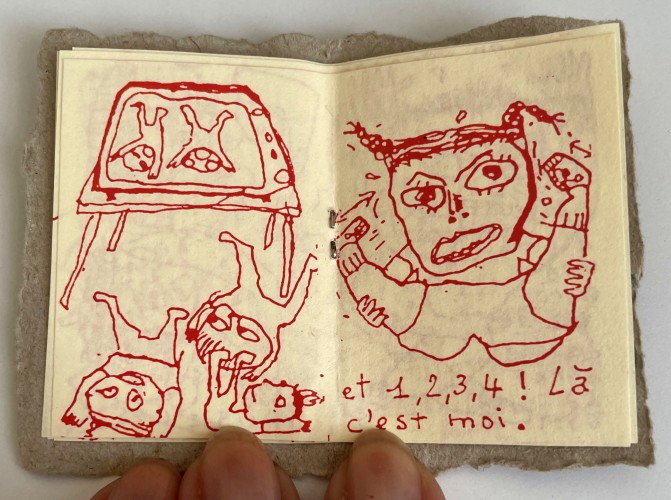 et 1,2,3,4! Là
c'est moi.